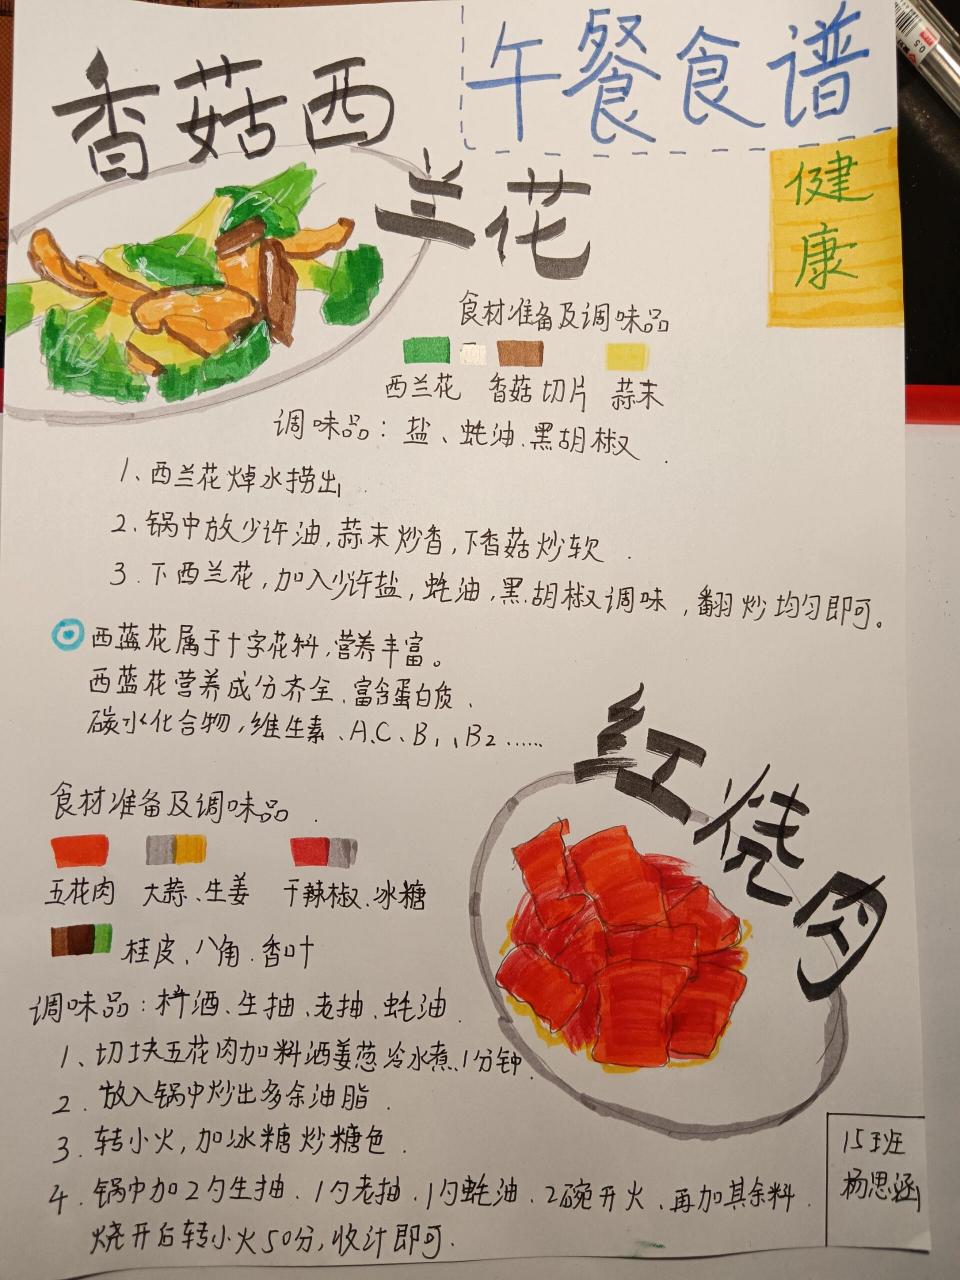 午餐食谱
健康
香菇西
兰花
食材准备及调味品
西兰花 香菇切片 蒜末
调味品：盐、蚝油、黑胡椒.
1、西兰花焯水捞出.
2.锅中放少许油,蒜末炒香,下香菇炒软.
3.下西兰花,加入少许盐,蚝油,黑胡椒调味,翻炒均匀即可。
西蓝花属于十字花科,营养丰富。
西蓝花营养成分齐全、富含蛋白质、
碳水化合物,维生素、A、C、B1、B2……
红烧肉
食材准备及调味品.
五花肉 大蒜、生姜 干辣椒、冰糖
桂皮、八角、香叶
调味品：料酒、生抽、老抽、蚝油.
1、切块五花肉加料酒姜葱冷水煮、1分钟.
2.放入锅中炒出多余油脂.
3.转小火,加冰糖炒糖色.
4.锅中加2勺生抽、1勺老抽、1勺蚝油、2碗开火、再加其余料.
烧开后转小火50分,收汁即可.
15班
杨思涵
0.5